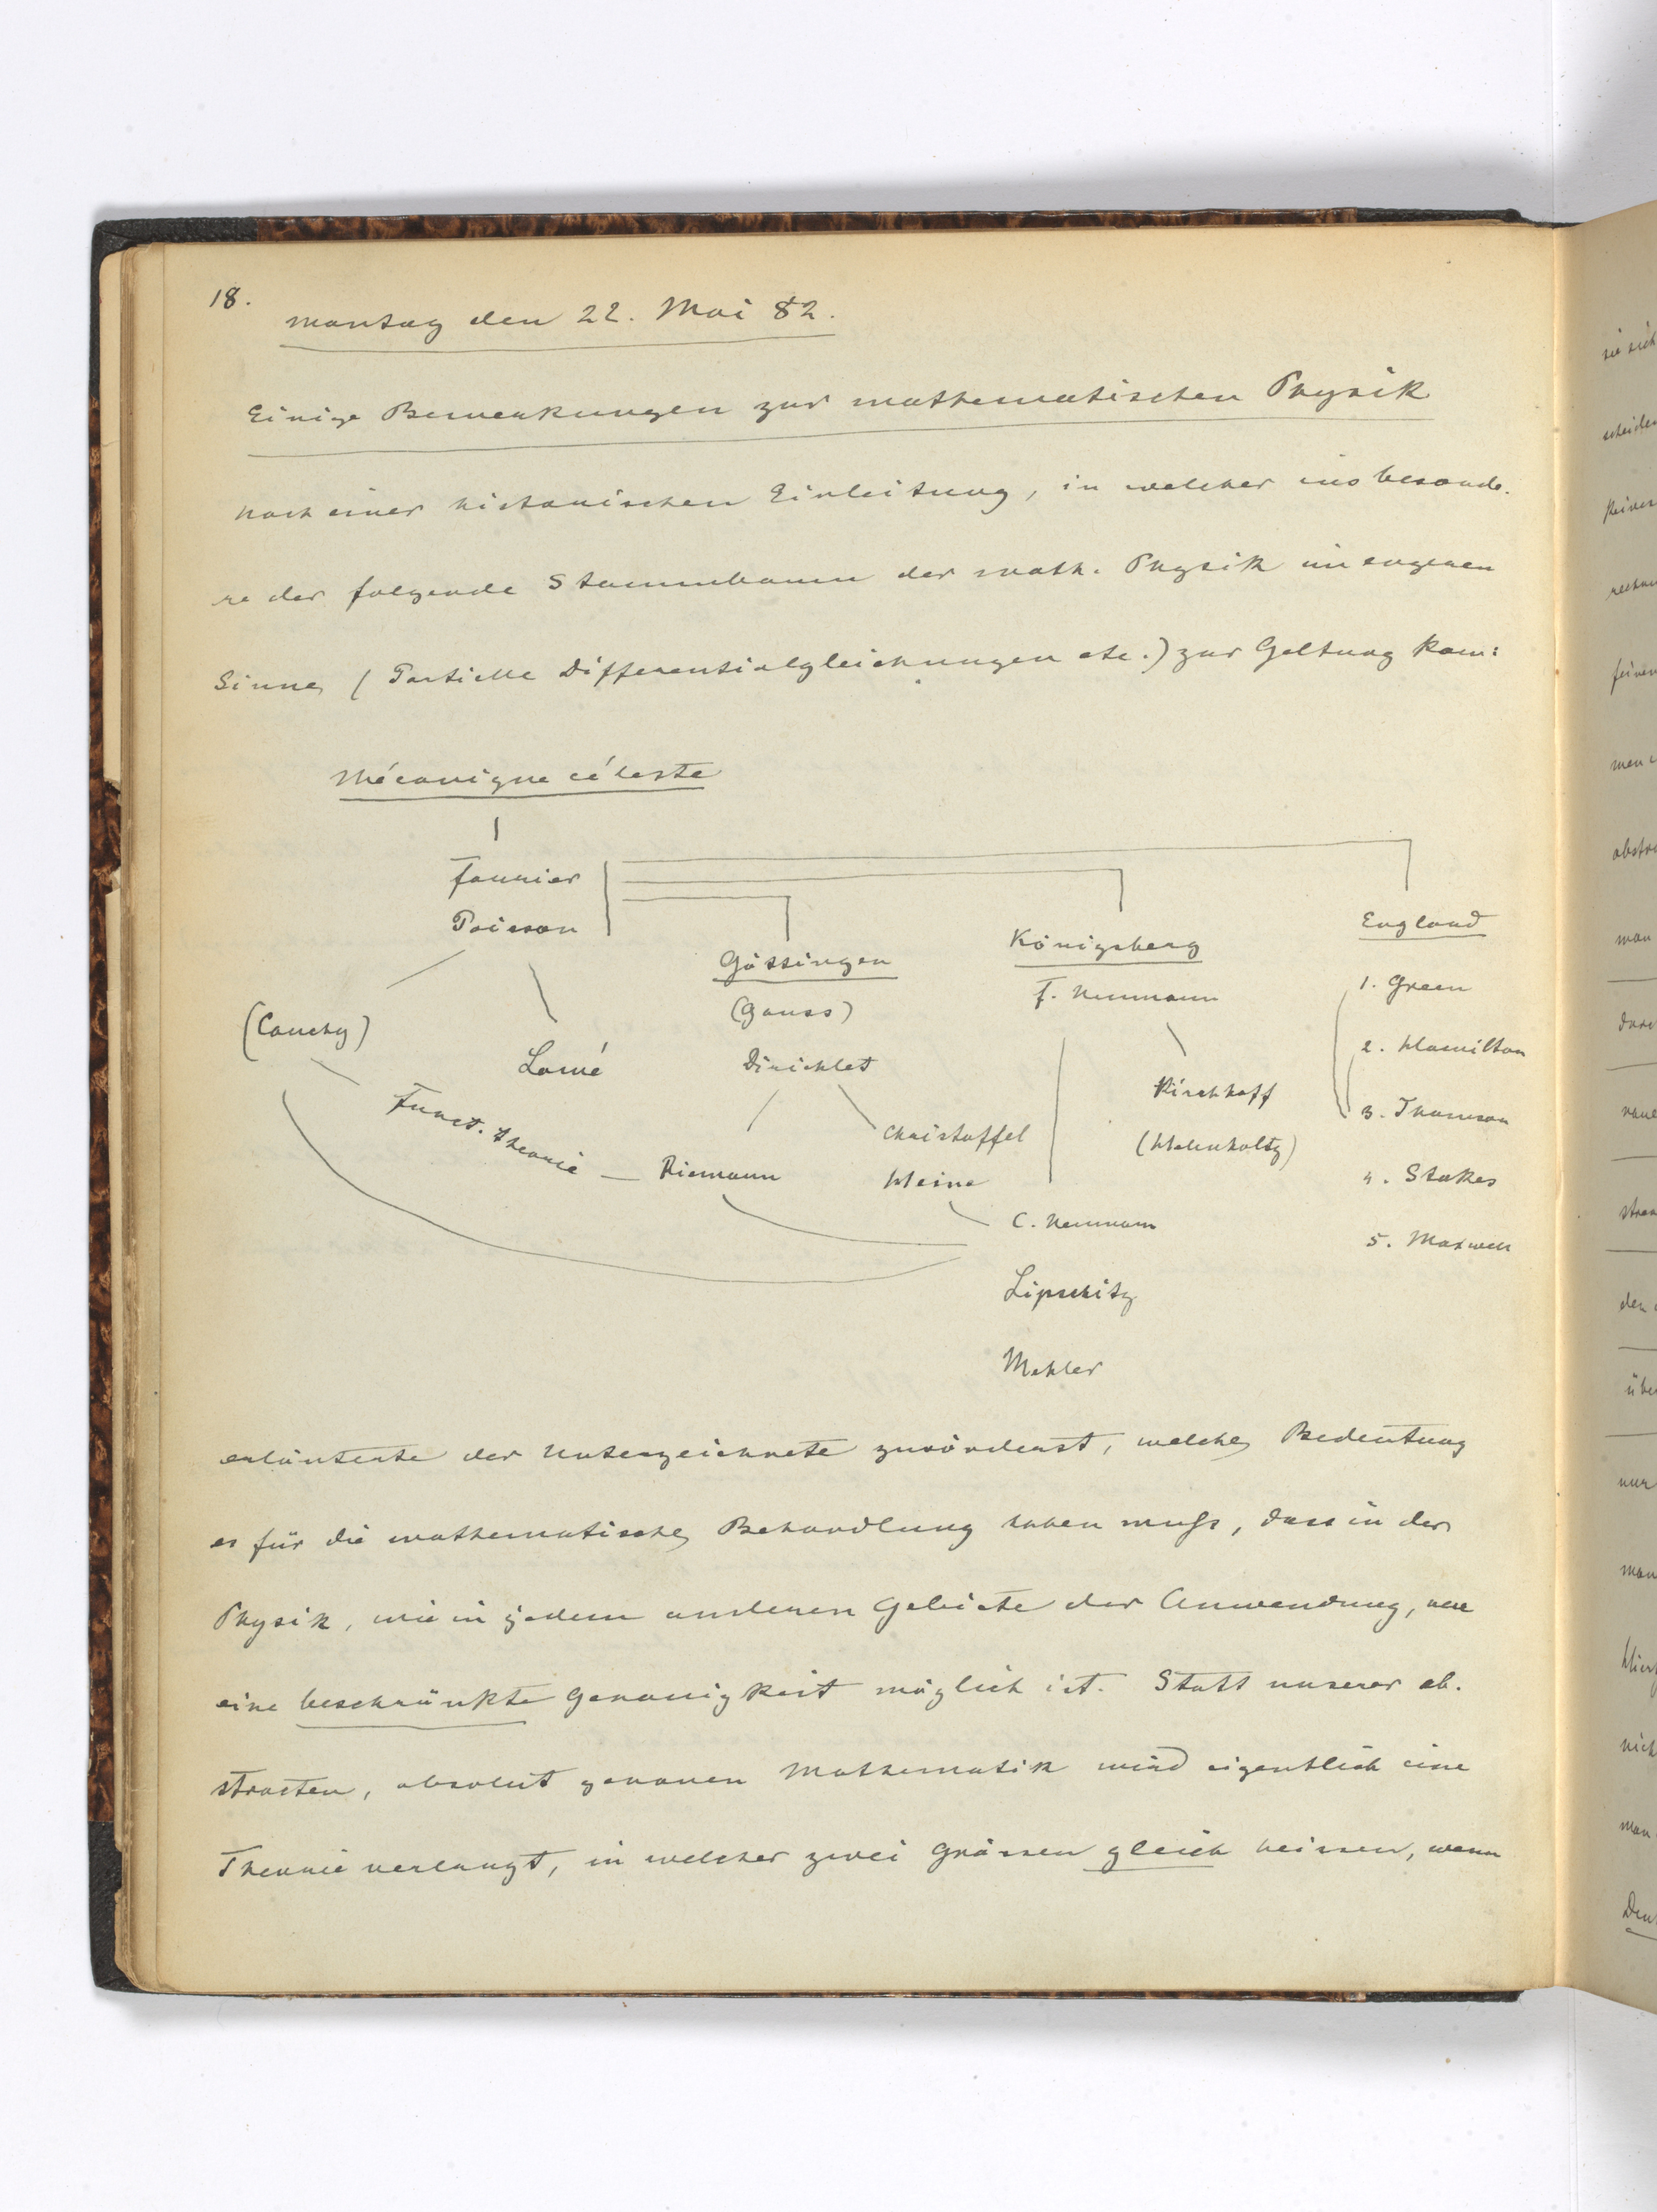 18.
Montag den 22. Mai 82.
Einige Bemerkungen zur mathematischen Physik
Nach einer historischen Einleitung, in welcher insbesonde-
re der folgende Stammbaum der math. Physik im engeren
Sinne (Partielle Differentialgleichungen etc.) zur Geltung kam:
Mécanique céleste
Fourier
Poisson
England
Königsberg
Göttingen
F. Neumann
1. Green
(Gauss)
(Cauchy)
2. Hamilton
Lamé
Dirichlet
Kirchhoff
3. Thomson
Funct. theorie
Christoffel
(Helmholtz)
Riemann
Heine
4. Stokes
C. Neumann
5. Maxwell
Lipschitz
Mehler
erläuterte der Unterzeichnete zuvörderst, welche Bedeutung
es für die mathematische Behandlung haben muß, dass in der
Physik, wie in jedem anderen Gebiete der Anwendung, nur
eine beschränkte Genauigkeit möglich ist. Statt unserer ab-
stracten, absolut genauen Mathematik wird eigentlich eine
Theorie verlangt, in welcher zwei Grössen gleich heissen, wenn